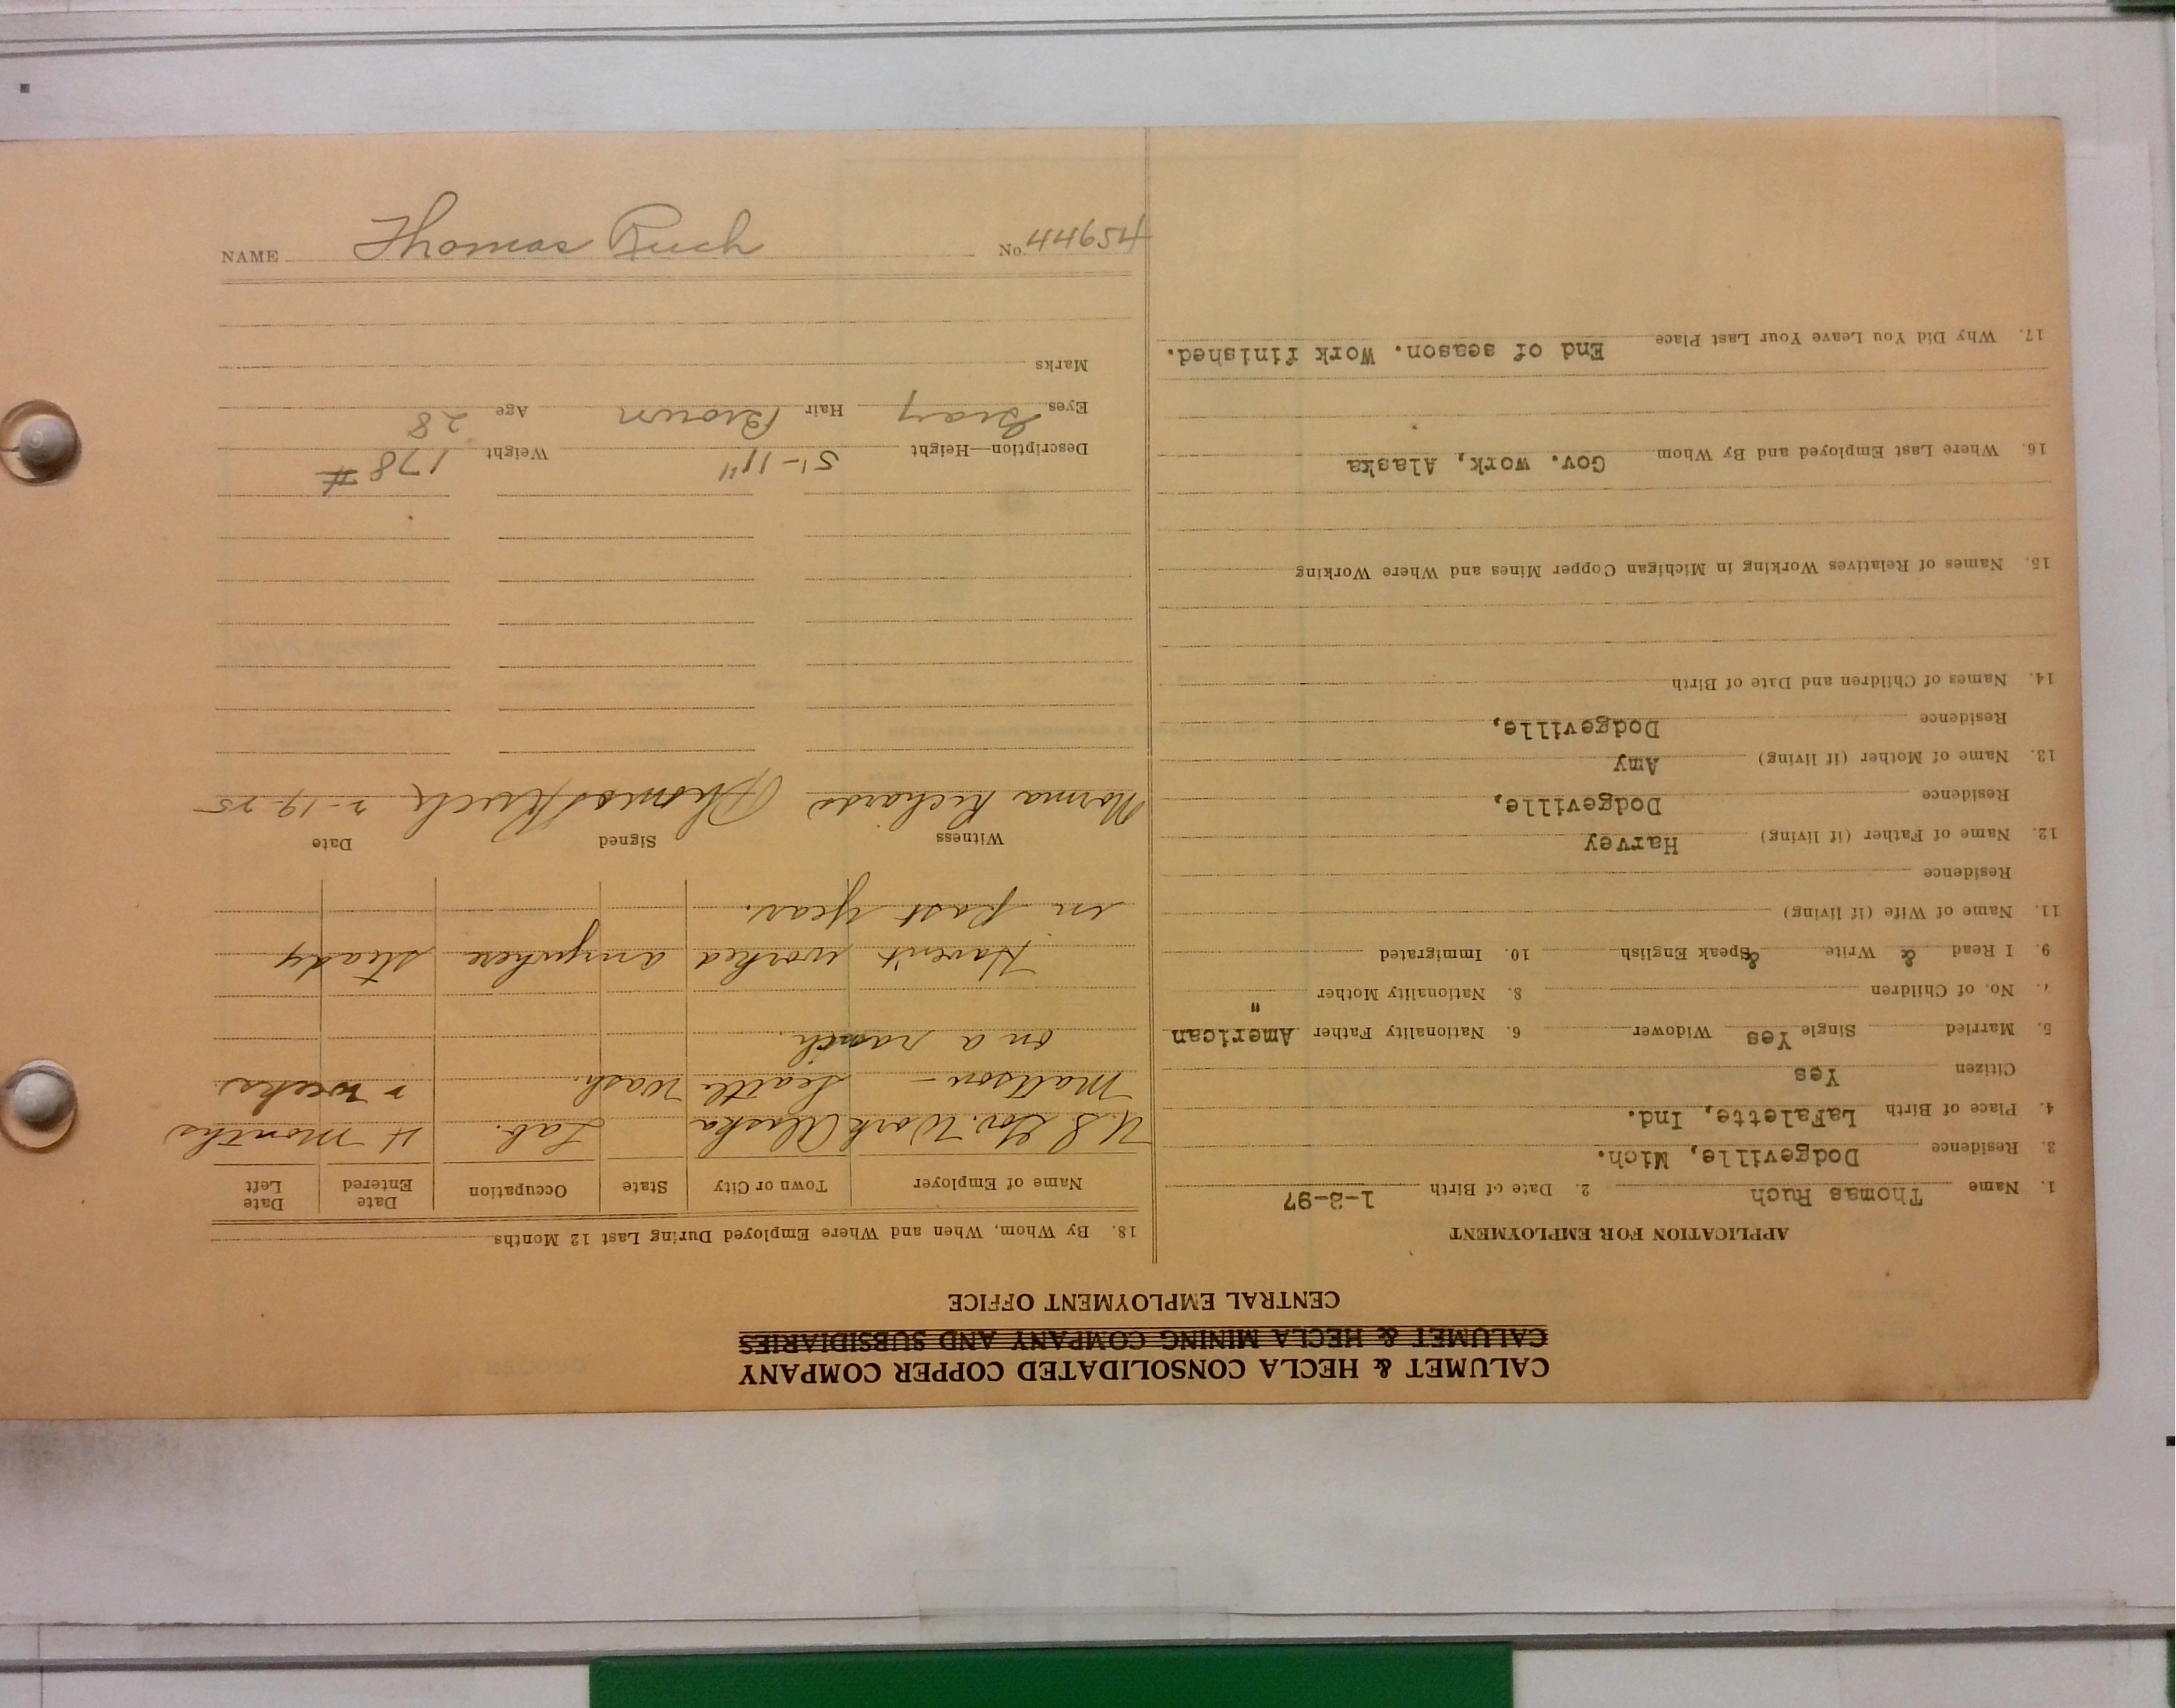 CALUMET & HECLA CONSOLIDATED COPPER COMPANY
CALUMET & HECLA MINING COMPANY AND SUBSIDIARIES
CENTRAL EMPLOYMENT OFFICE
APPLICATION FOR EMPLOYMENT
1. Name Thomas Ruch 2. Date of Birth 1-3-97
3. Residence Dodgeville, Mich.
4. Place of Birth LaFalette, Ind.
Citizen Yes
5. Married Single Yes Widower 6. Nationality Father American
7. No. of Children 8. Nationality Mother "
9. I Read & Write & Speak English 10. Immigrated
11. Name of Wife (if living)
Residence
12. Name of Father (if living) Harvey
Residence Dodgeville,
13. Name of Mother (if living) Amy
Residence Dodgeville,
14. Names of Children and Date of Birth
15. Names of Relatives Working in Michigan Copper Mines and Where Working
16. Where Last Employed and By Whom Gov. work, Alaska
17. Why Did You Leave Your Last Place End of season. Work finished.
18. By Whom, When and Where Employed During Last 12 Months
Name of Employer Town or City State Occupation Date Entered Date Left
U.S. Gov. Work Alaska Lab. 4 months
Mattson - Seattle Wash. 2 weeks
on a ranch.
Haven't worked anywhere steady
in past year.
Witness Signed Date
Norma Richards Thomas Ruch 2-19-25
Description—Height 5'-11" Weight 178 #
Eyes Gray Hair Brown Age 28
Marks
NAME Thomas Ruch No. 44654